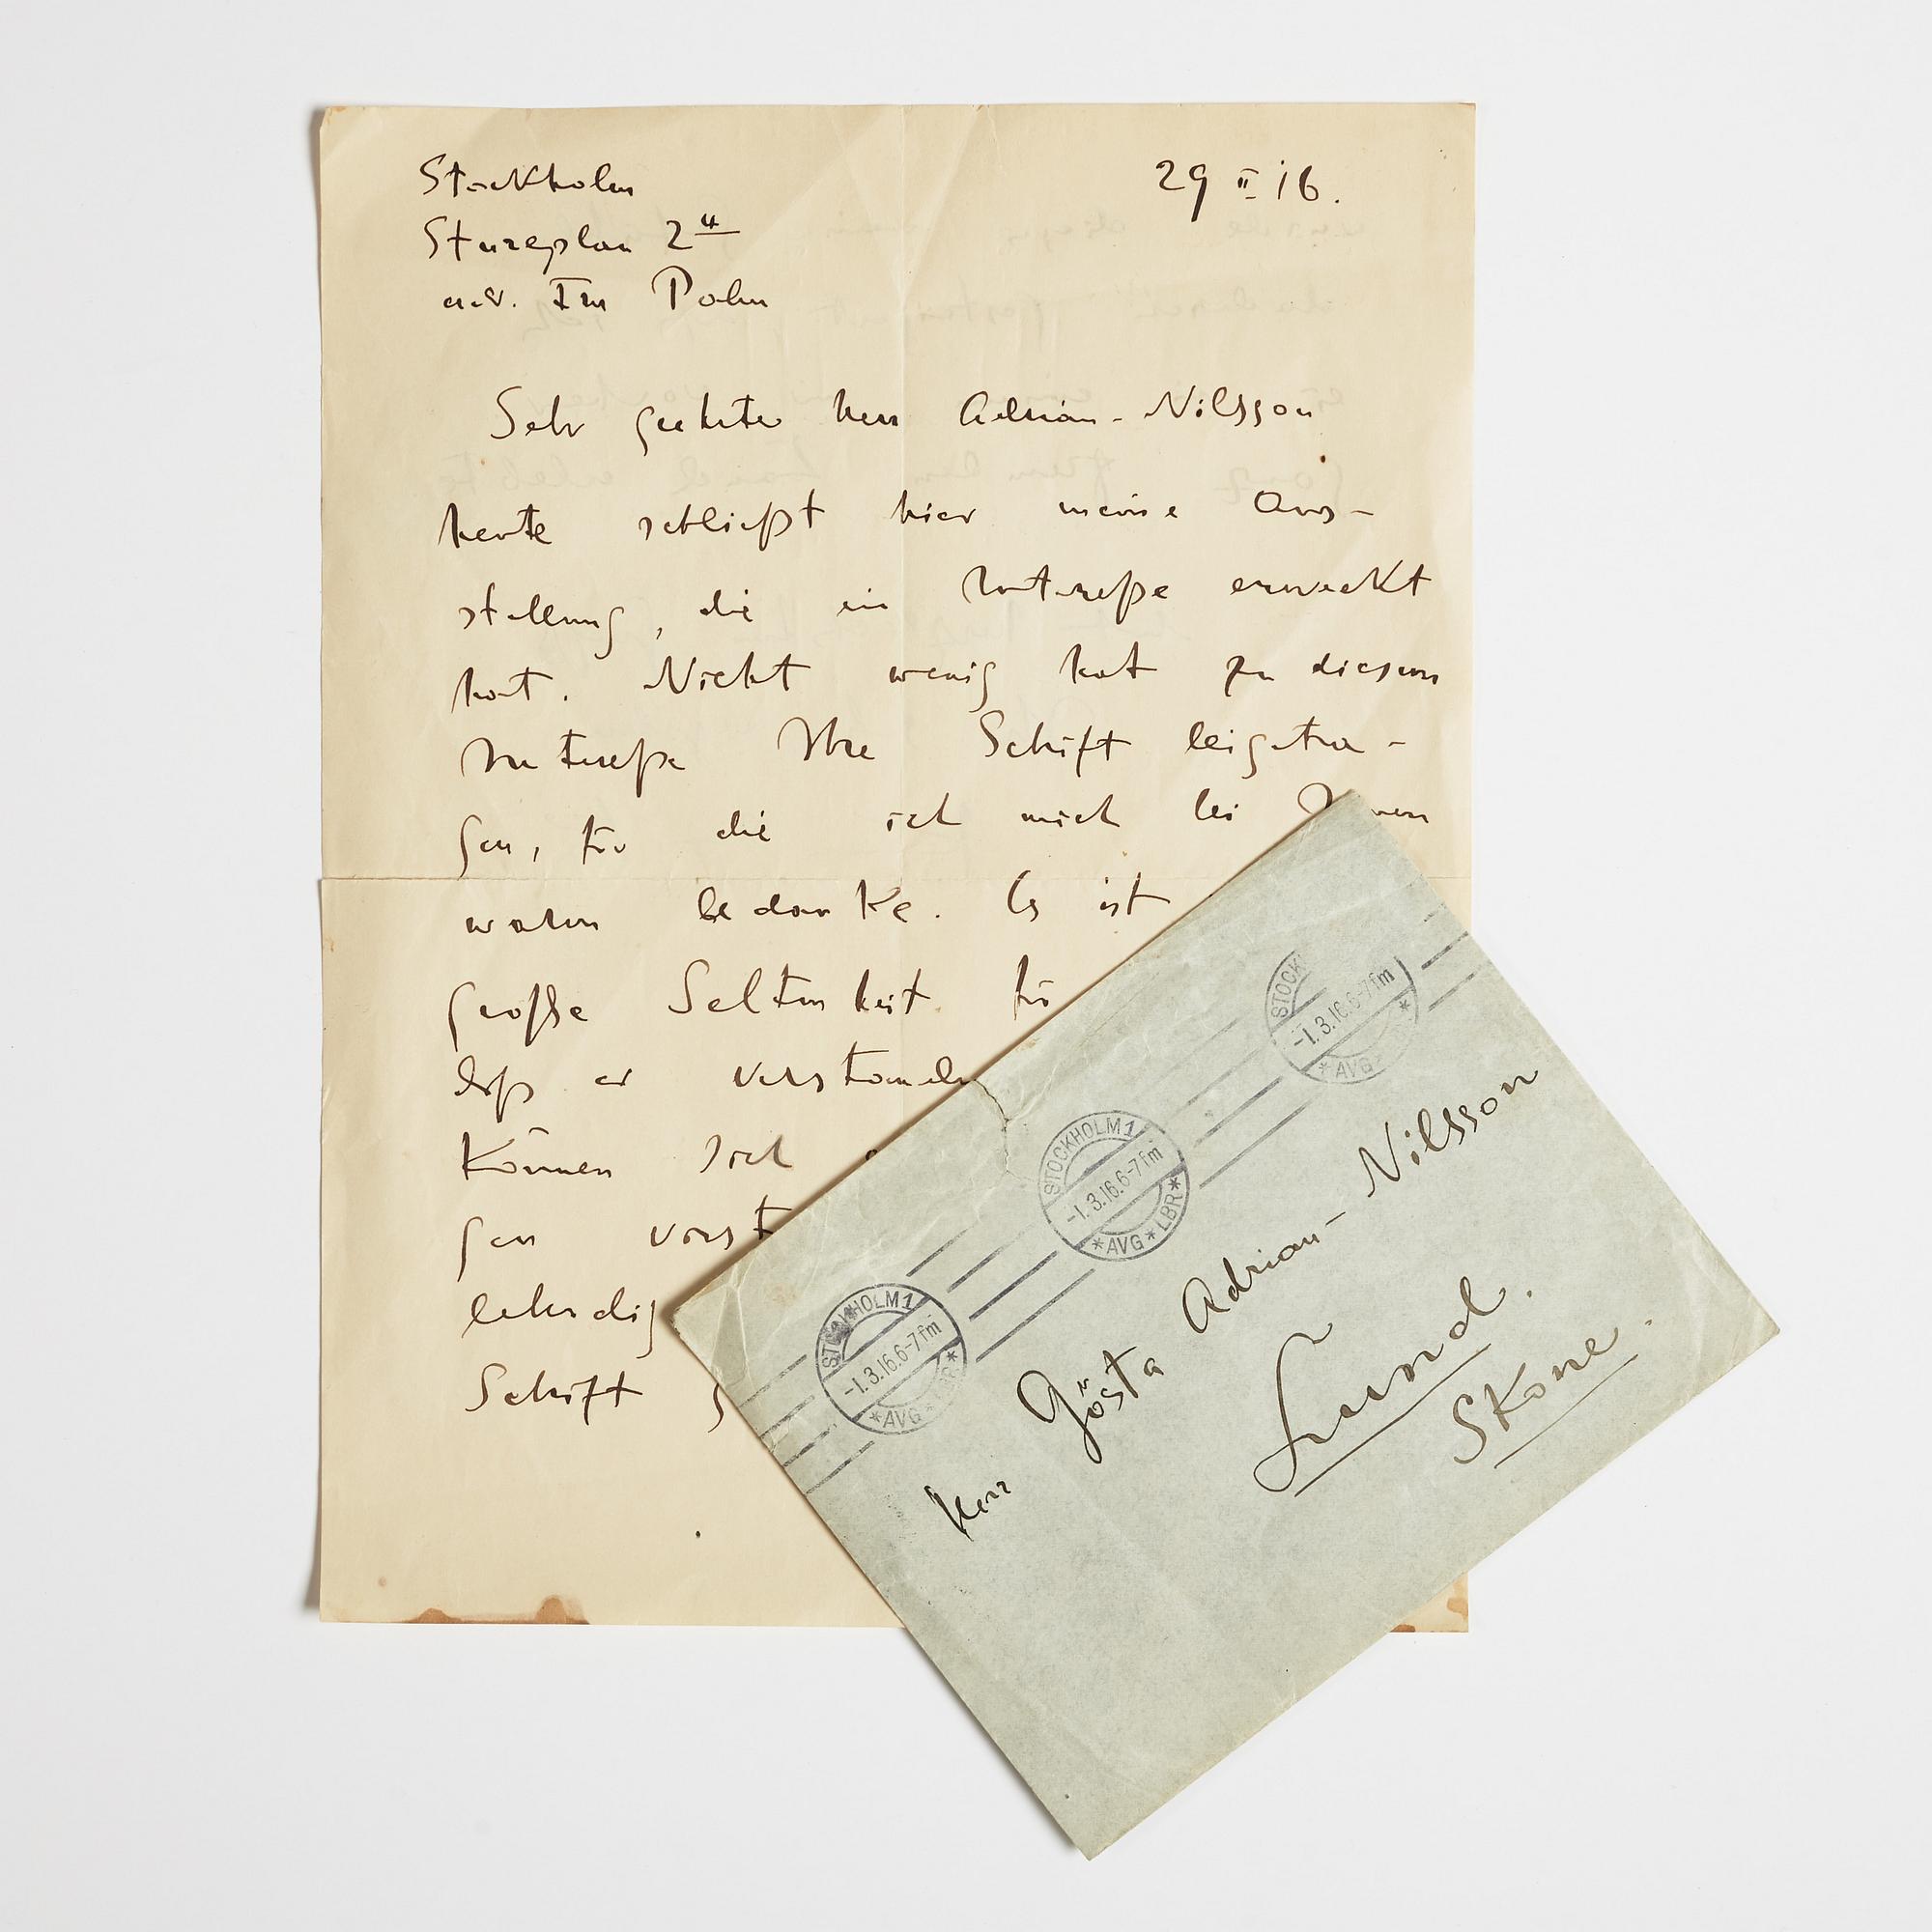 Stockholm
Stureplan 2
29 II 16.
Sehr geehrter Herr Adrian-Nilsson
heute schließt hier meine Aus-
stellung, die ein Intereße erweckt
hat. Nicht wenig hat zu diesem
Intereße Ihre Schrift beigetra-
gen, für die ich mich bei
warm bedanke. Es ist
große Seltenheit für
daß er verstanden
Können Sich
gen vorst
lebendig
Schrift
STOCKHOLM 1
-1.3.16.6-7 fm
*AVG*LBR*
STOCKHOLM 1
-1.3.16.6-7 fm
*AVG*LBR*
STOCK
-1.3.16.6-7 fm
*AVG
Herr Gösta Adrian-Nilsson
Lund.
Skåne.